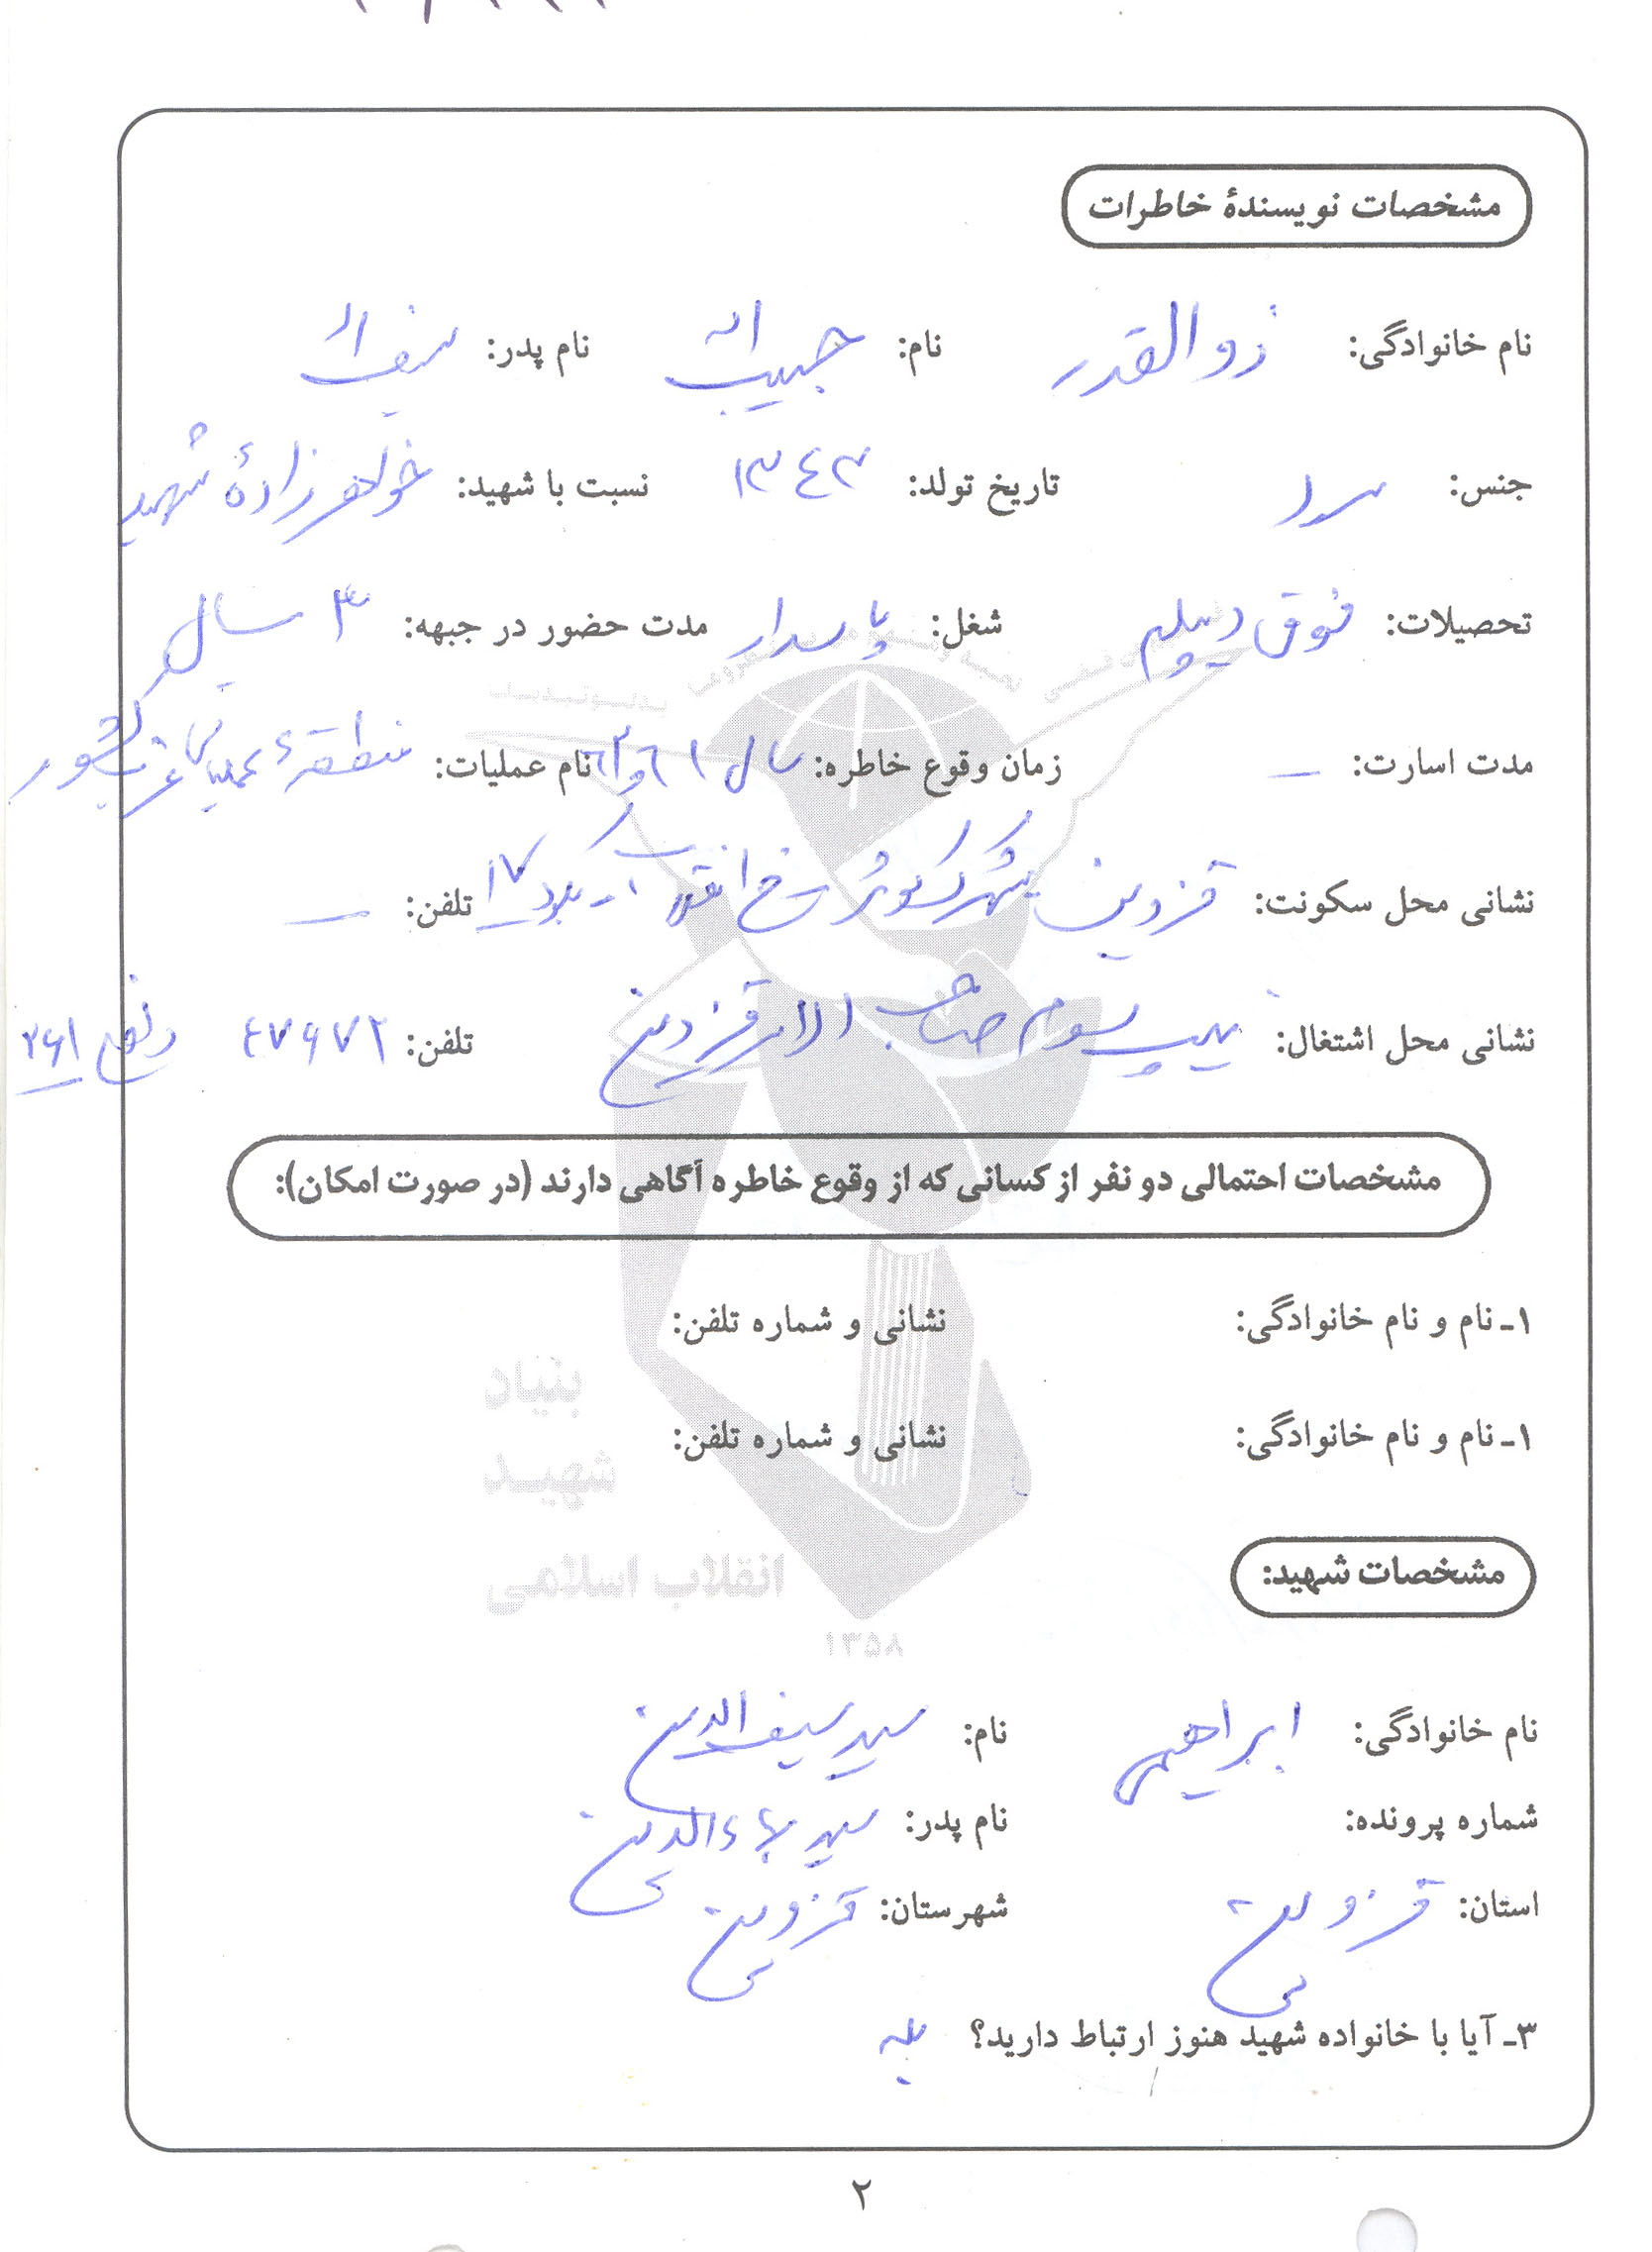 مشخصات نویسندهٔ خاطرات
نام خانوادگی: ذوالقدر نام: حبیب اله نام پدر: سیف اله
جنس: مرد تاریخ تولد: ۱۳۴۳ نسبت با شهید: خواهرزادهٔ شهید
تحصیلات: فوق دیپلم شغل: پاسدار مدت حضور در جبهه: ۳ سال
مدت اسارت: — زمان وقوع خاطره: سال ۶۱ و ۶۲ نام عملیات: منطقهٔ عملیاتی غرب کشور
نشانی محل سکونت: قزوین شهرک کوثر خ انقلاب ۱ـ پلاک ۱۷ تلفن: —
نشانی محل اشتغال: تیپ سوم صاحب الامر قزوین تلفن: ۴۷۶۷۲ ۲۶۱
مشخصات احتمالی دو نفر از کسانی که از وقوع خاطره آگاهی دارند (در صورت امکان):
۱ـ نام و نام خانوادگی: نشانی و شماره تلفن:
۱ـ نام و نام خانوادگی: نشانی و شماره تلفن:
بنیاد
شهید
انقلاب اسلامی
۱۳۵۸
مشخصات شهید:
نام خانوادگی: ابراهیمی نام: سید سیف الدین
شماره پرونده: نام پدر: سید بهاءالدین
استان: قزوین شهرستان: قزوین
۳ـ آیا با خانواده شهید هنوز ارتباط دارید؟ بله
۲